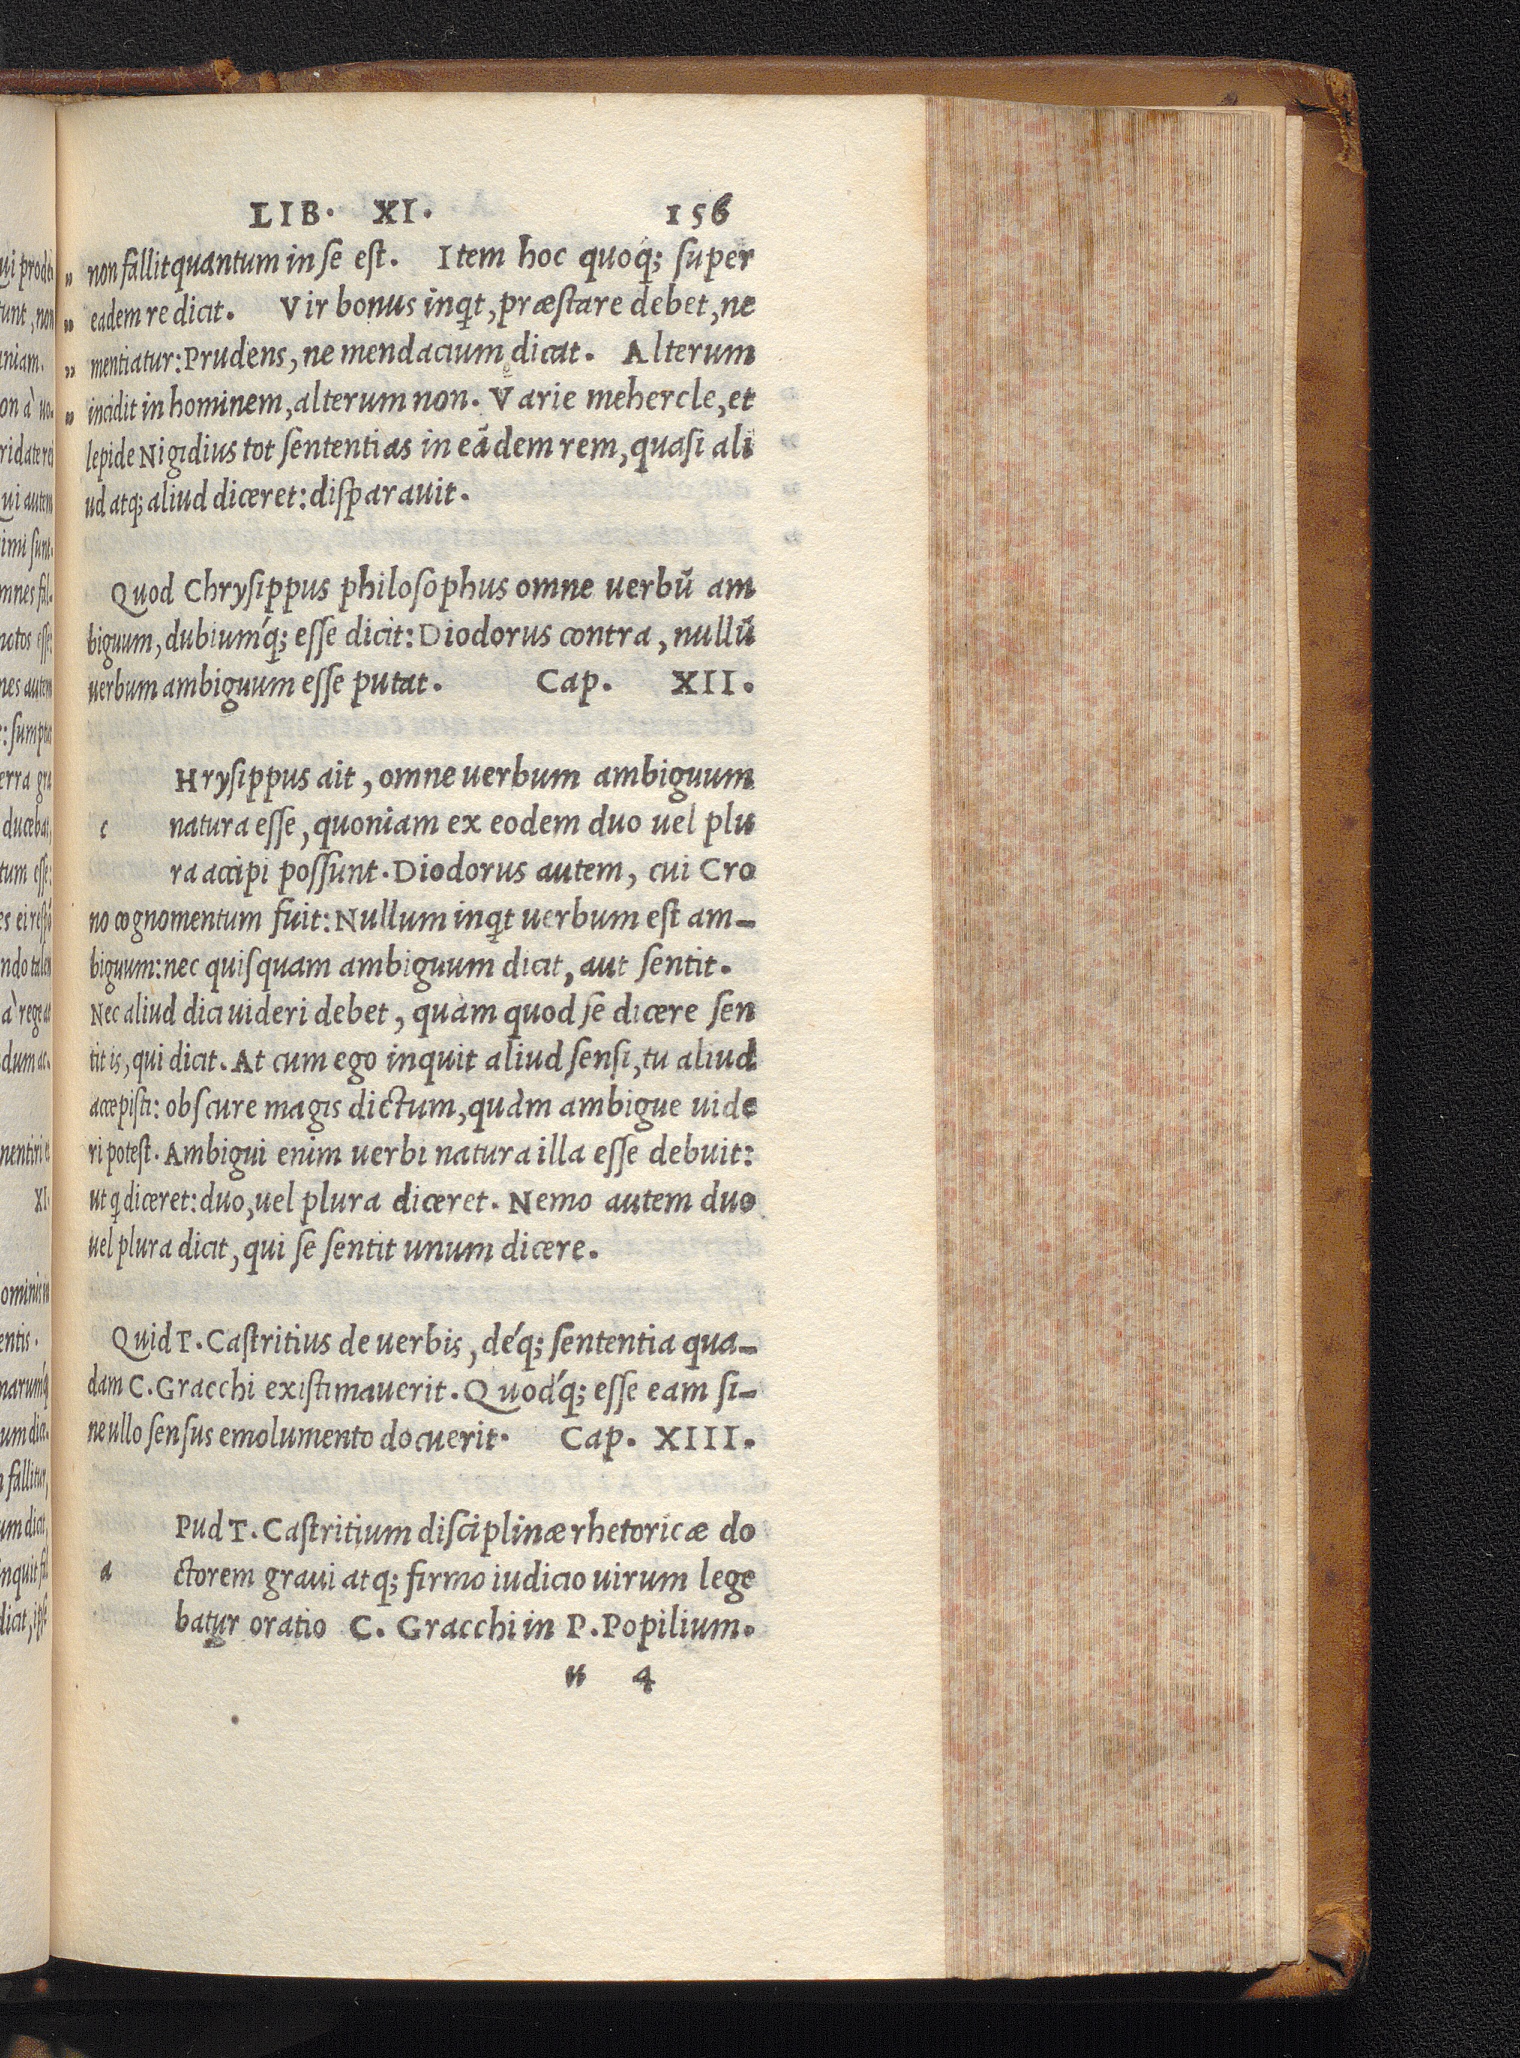 LIB. XI. 156
non fallit quantum in se est. Item hoc quoq; super
eadem re dicit. Vir bonus inqt, præstare debet, ne
mentiatur: Prudens, ne mendacium dicat. Alterum
incidit in hominem, alterum non. Varie mehercle, et
lepide Nigidius tot sententias in eādem rem, quasi ali
ud atq; aliud diceret: disparavit.
Quod Chrysippus philosophus omne verbū am
biguum, dubiumq́; esse dicit: Diodorus contra, nullū
verbum ambiguum esse putat. Cap. XII.
Hrysippus ait, omne verbum ambiguum
c natura esse, quoniam ex eodem duo vel plu
ra accipi possunt. Diodorus autem, cui Cro
no cognomentum fuit: Nullum inqt verbum est am-
biguum: nec quisquam ambiguum dicit, aut sentit.
Nec aliud dici videri debet, quàm quod se dicere sen
tit is, qui dicit. At cum ego inquit aliud sensi, tu aliud
accepisti: obscure magis dictum, quàm ambigue vide
ri potest. Ambigui enim verbi natura illa esse debuit:
ut q diceret: duo, vel plura diceret. Nemo autem duo
vel plura dicit, qui se sentit unum dicere.
Quid T. Castritius de verbis, déq; sententia qua-
dam C. Gracchi existimaverit. Quodq́; esse eam si-
ne ullo sensus emolumento docuerit. Cap. XIII.
Pud T. Castritium disciplinæ rhetoricæ do
a ctorem gravi atq; firmo iudicio virum lege
batur oratio C. Gracchi in P. Popilium.
u 4